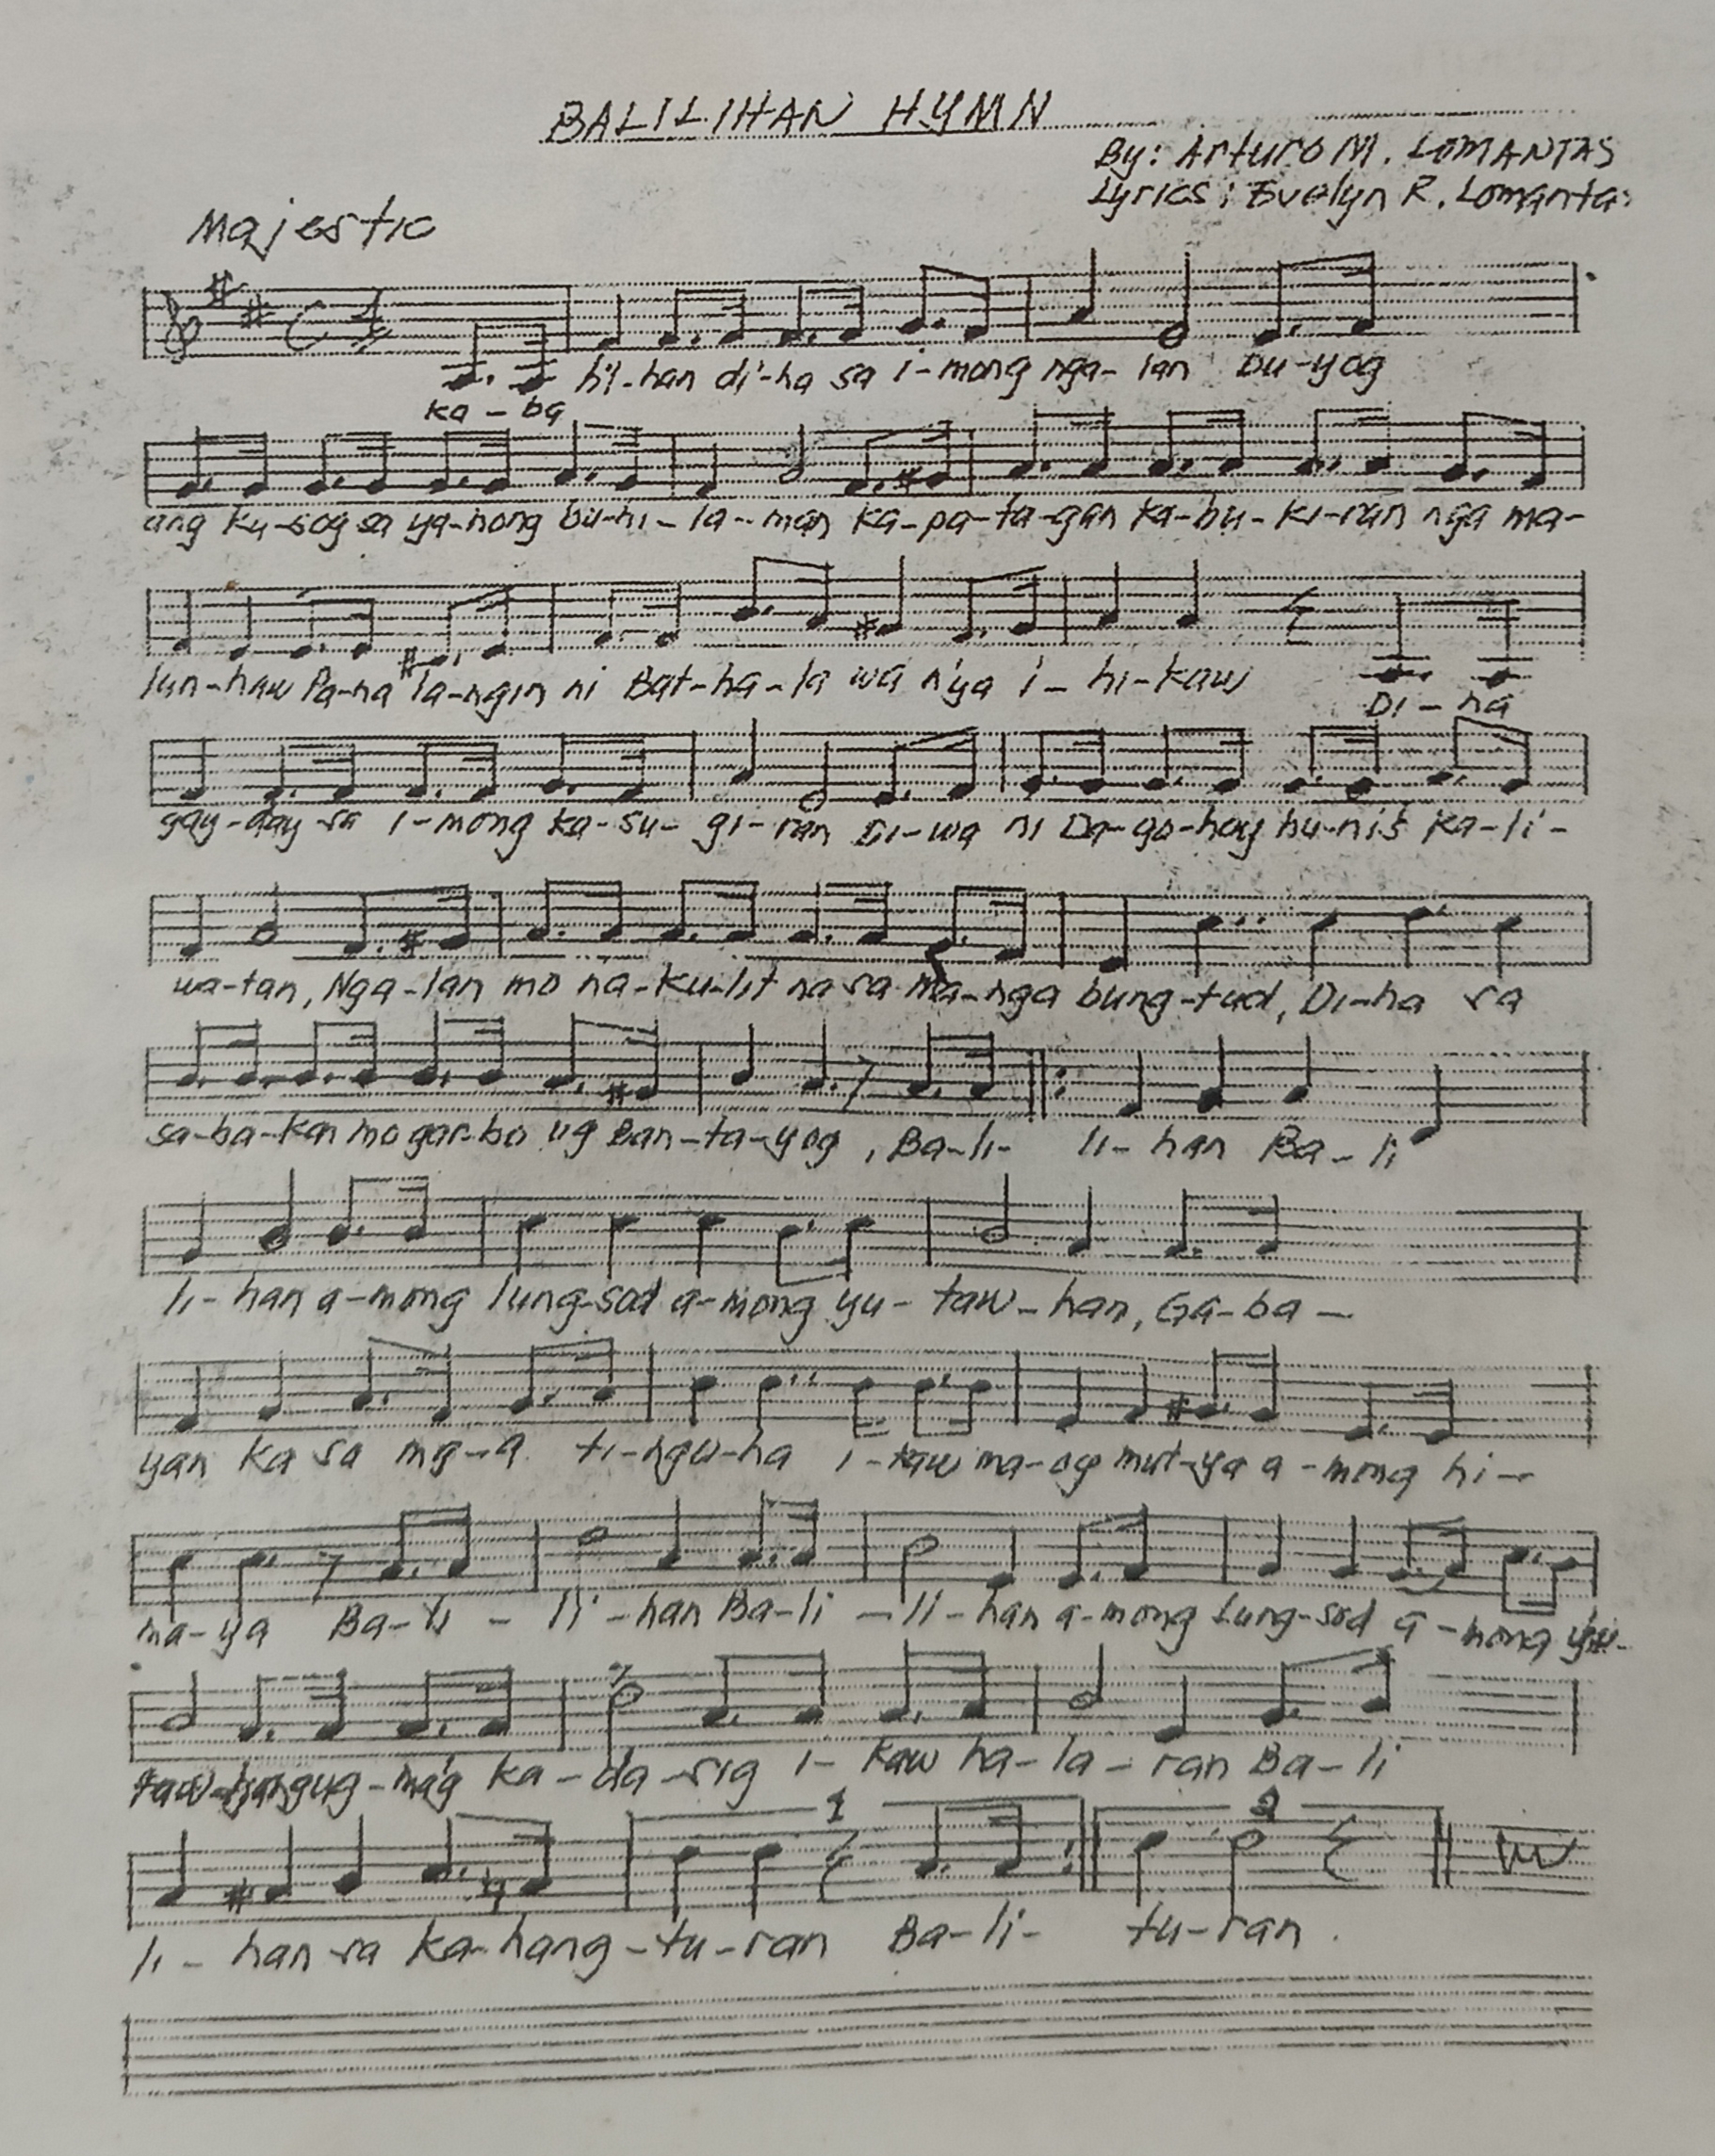 BALILIHAN HYMN
By: Arturo M. LOMANTAS
Lyrics: Evelyn R. Lomanta
Majestic
hi-han di-ha sa i-mong nga-lan Du-yog
Ka-ba
ang ku-sog sa ya-nong bu-hi-la-man ka-pa-ta-gan ka-bu-ki-ran nga ma-
lun-haw Pa-na la-ngin ni Bat-ha-la wa n'ya i-hi-kaw
Di-na
gay-day sa i-mong ka-su-gi-ran Di-wa ni Da-go-hoy hu-nis ka-li-
wa-tan, Nga-lan mo na-ku-lit na sa ma-nga bung-tud, Di-ha sa
sa-ba-kan mo gar-bo ug ban-ta-yog, Ba-li- li-han Ba-li
li-han a-mong lung-sod a-mong yu-taw-han, Ga-ba-
yan ka sa mg-a ti-ngu-ha i-kaw ma-og mut-ya a-mong hi-
ma-ya Ba-li - li-han Ba-li - li-han a-mong lung-sod a-mong yu-
taw-han ug-mag ka-da-sig i-kaw ha-la-ran Ba-li
1 2
li-han sa ka-hang-tu-ran Ba-li- tu-ran.